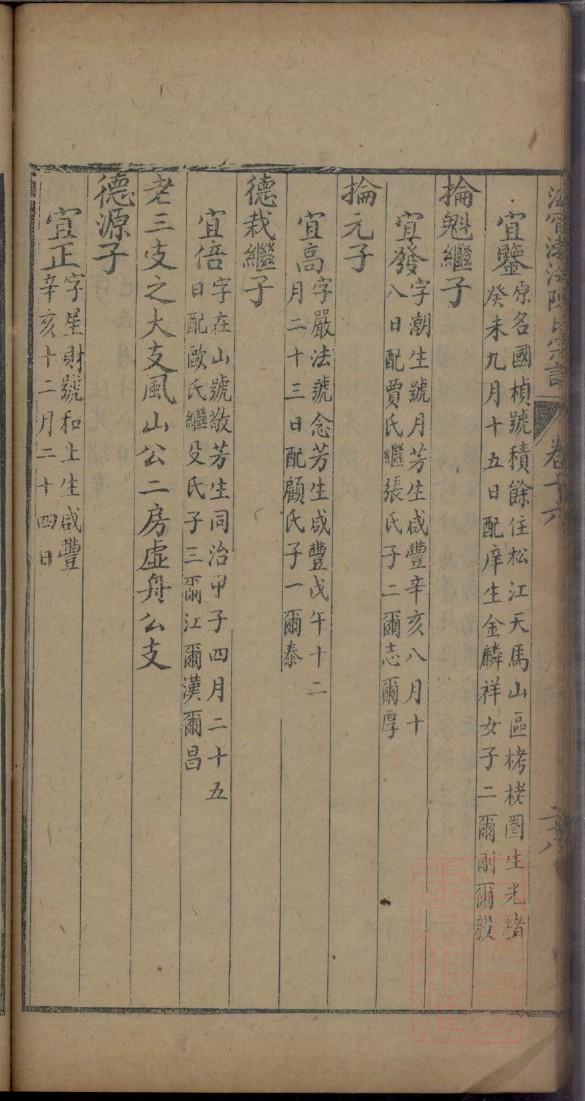 海寧渤海陳氏宗譜
卷十六
二十八
宜鑒
原名國楨號積餘住松江天馬山區栲栳圖生光緒
癸未九月十五日配庠生金麟祥女子二爾剛爾毅
掄魁繼子
宜發
字潮生號月芳生咸豐辛亥八月十
八日配賈氏繼張氏子二爾志爾厚
掄元子
宜高
字嚴法號念芳生咸豐戊午十二
月二十三日配顧氏子一爾泰
德栽繼子
宜倍
字在山號敬芳生同治甲子四月二十五
日配歐氏繼殳氏子三爾江爾漢爾昌
老三支之大支風山公二房虛舟公支
德源子
宜正
字星財號和上生咸豐
辛亥十二月二十四日